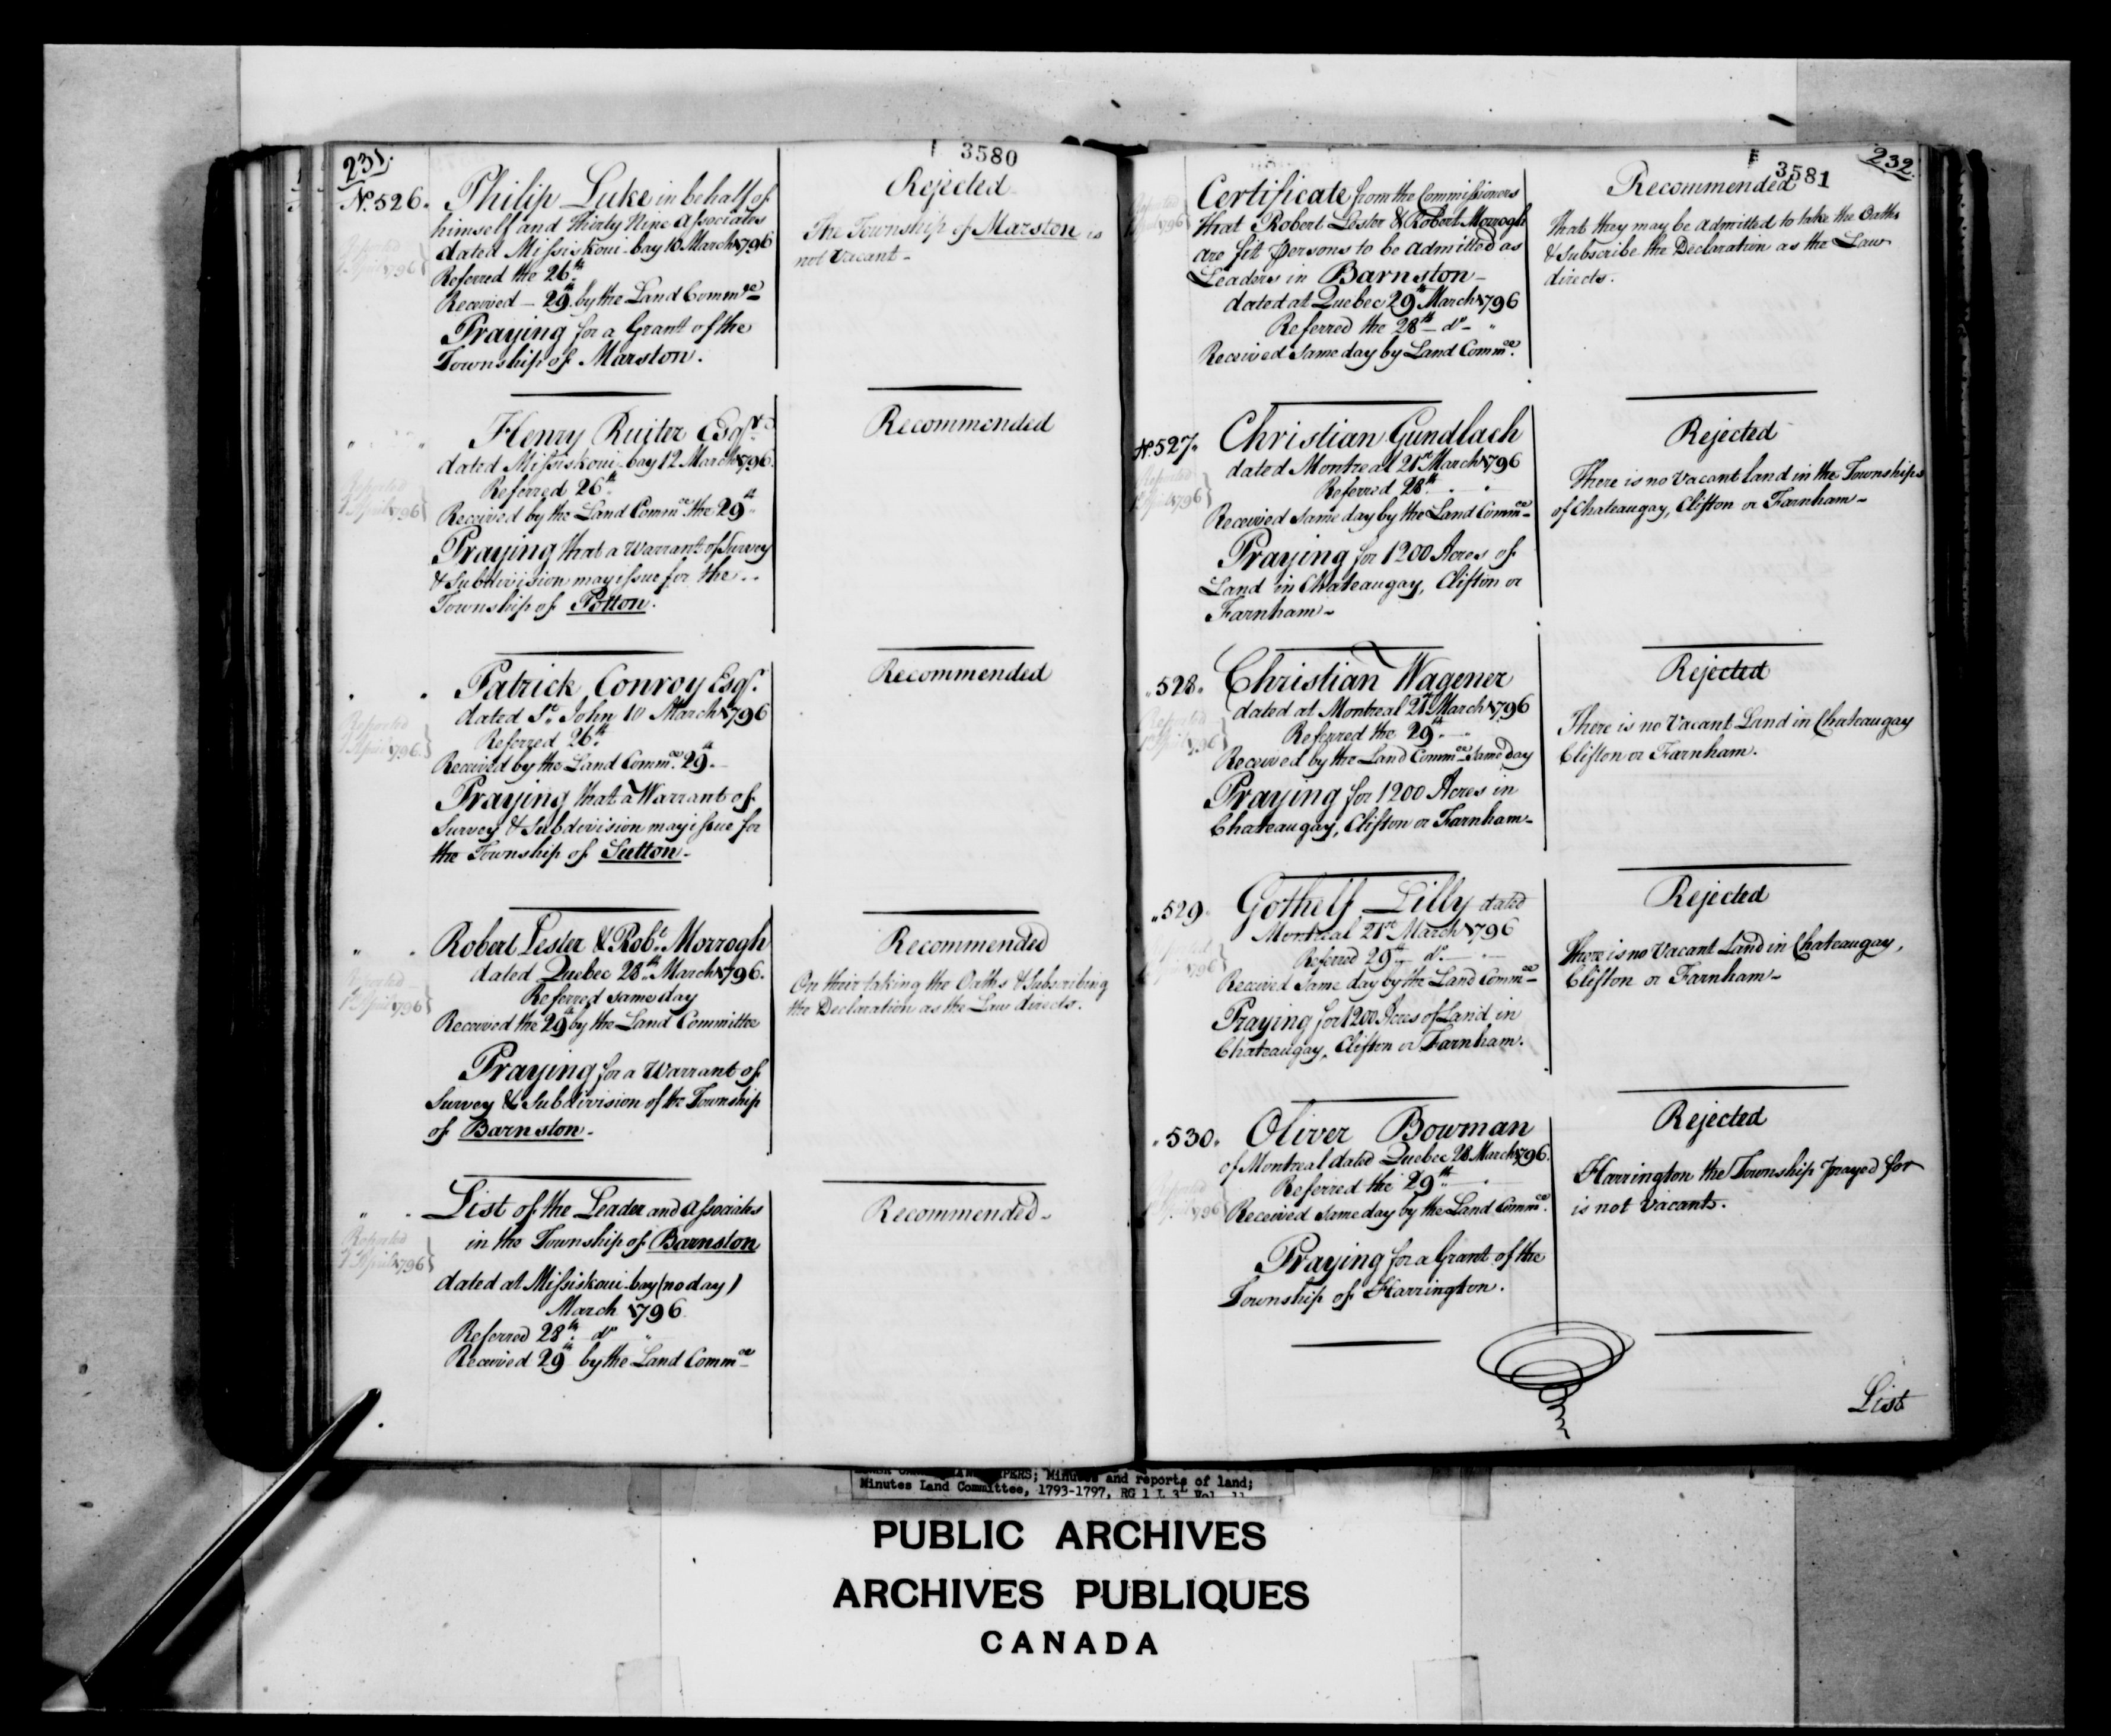 231.
3580
N.° 526.
Philip Luke in behalf of
himself and Thirty Nine Associates
dated Missiskoui-bay 10 March 1796
Referred the 26th
Received — 29th by the Land Commee
Praying for a Grant of the
Township of Marston.
Reported
1 April 1796
Rejected
The Township of Marston is
not Vacant -
Henry Ruiter Esqr
dated Missiskoui-bay 12 March 1796.
Referred 26th
Received by the Land Commee the 29th
Praying that a Warrant of Survey
& Subdivision may issue for the ..
Township of Potton.
Reported
1 April 1796
Recommended
Patrick Conroy Esqr.
dated St. John 10 March 1796
Referred 26th
Received by the Land Commee 29th
Praying that a Warrant of
Survey & Subdivision may issue for
the Township of Sutton -
Reported
1 April 1796
Recommended
Robert Lester & Robt. Morrogh
dated Quebec 28th March 1796.
Referred same day
Received the 29th by the Land Committee
Praying for a Warrant of
Survey & Subdivision of the Township
of Barnston -
Reported
1 April 1796
Recommended
On their taking the Oaths & Subscribing
the Declaration as the Law directs.
List of the Leader and Associates
in the Township of Barnston
dated at Missiskoui-bay (no day)
March 1796
Referred 28th do "
Received 29th by the Land Commee
Reported
1 April 1796
Recommended -
3581
232.
Certificate from the Commissioners
that Robert Lester & Robert Morrogh
are fit persons to be admitted as
Leaders in Barnston -
dated at Quebec 29th March 1796
Referred the 28th do "
Received same day by Land Commee.
Recommended
That they may be admitted to take the Oaths
& Subscribe the Declaration as the Law
directs.
N.° 527.
Christian Gundlach
dated Montreal 21st March 1796
Referred 28th
Received same day by the Land Commee
Praying for 1200 Acres of
Land in Chateaugay, Clifton or
Farnham -
Reported
1 April 1796
Rejected
There is no Vacant land in the Townships
of Chateaugay, Clifton or Farnham -
" 528.
Christian Wagener
dated at Montreal 21st March 1796
Referred the 29th
Received by the Land Commee same day
Praying for 1200 Acres in
Chateaugay, Clifton or Farnham -
Reported
1 April 1796
Rejected
There is no Vacant Land in Chateaugay
Clifton or Farnham.
" 529.
Gothelf Lilly dated
Montreal 21st March 1796
Referred 29th do
Received same day by the Land Commee
Praying for 1200 Acres of Land in
Chateaugay, Clifton or Farnham.
Rejected
There is no Vacant Land in Chateaugay,
Clifton or Farnham -
" 530.
Oliver Bowman
of Montreal dated Quebec 28 March 1796.
Referred the 29th
Received same day by the Land Commee.
Praying for a Grant of the
Township of Harrington.
Rejected
Harrington the Township prayed for
is not vacant.
List
PERS; Minutes and reports of land;
Minutes Land Committee, 1793-1797, RG 1 L 3L Vol. 11
PUBLIC ARCHIVES
ARCHIVES PUBLIQUES
CANADA